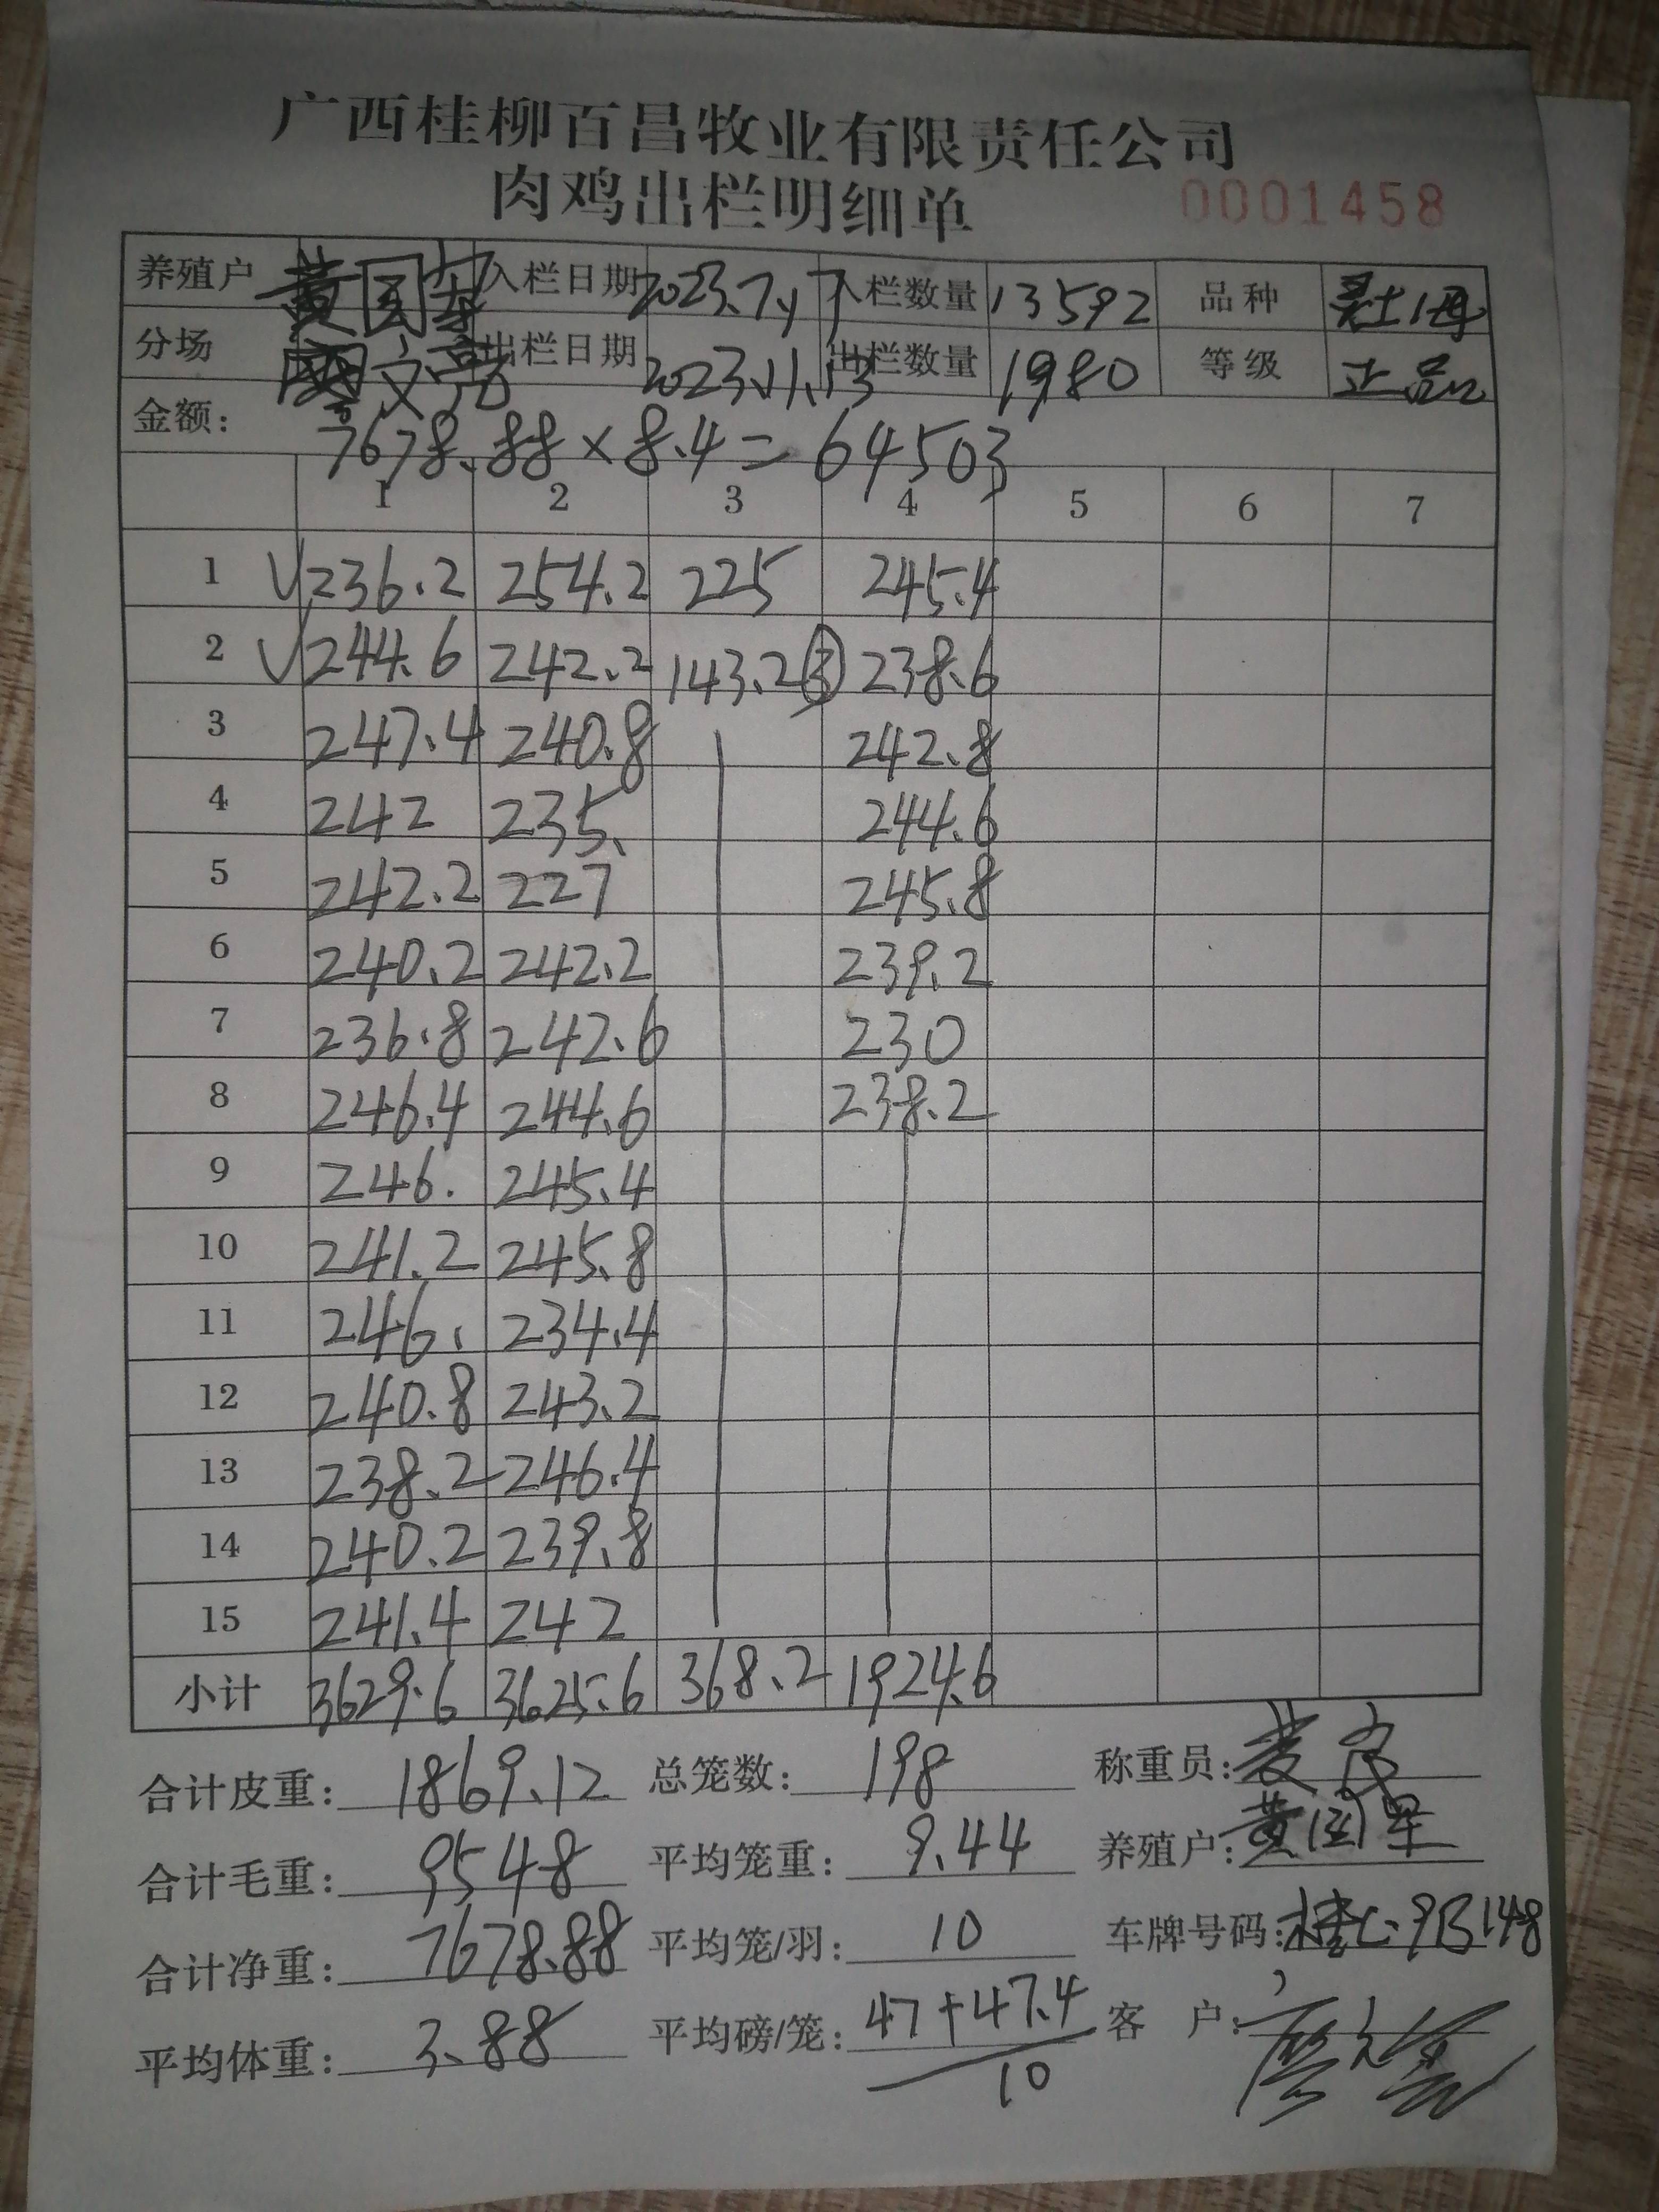 广西桂柳百昌牧业有限责任公司
肉鸡出栏明细单 0001458
养殖户 黄国军 入栏日期 2023.7.17 入栏数量 13592 品种
分场 出栏日期 2023.11.13 出栏数量 1980 等级 正品
金额: 7678.88×8.4=64503
1 2 3 4 5 6 7
1 √236.2 254.2 225 245.4
2 √244.6 242.2 143.2③ 238.6
3 247.4 240.8 242.8
4 242 235. 244.6
5 242.2 227 245.8
6 240.2 242.2 239.2
7 236.8 242.6 230
8 246.4 244.6 238.2
9 246. 245.4
10 241.2 245.8
11 246. 234.4
12 240.8 243.2
13 238.2 246.4
14 240.2 239.8
15 241.4 242
小计 3629.6 3625.6 368.2 1924.6
合计皮重: 1869.12 总笼数: 198 称重员:
合计毛重: 9548 平均笼重: 9.44 养殖户: 黄国军
合计净重: 7678.88 平均笼/羽: 10 车牌号码: 桂C·9B148
平均体重: 3.88 平均磅/笼: 47+47.4 客 户:
10